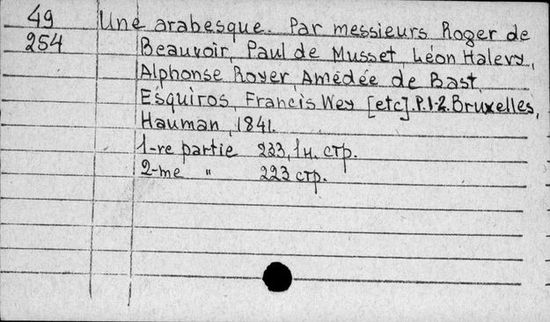 49 Une arabesque. Par messieurs Roger de
254 Beauvoir, Paul de Musset, Léon Halevy,
Alphonse Royer, Amédée de Bast,
Esquiros, Francis Wey [etc] P.1-2. Bruxelles,
Hauman, 1841.
1-re partie 233, 1 н. стр.
2-me " 223 стр.